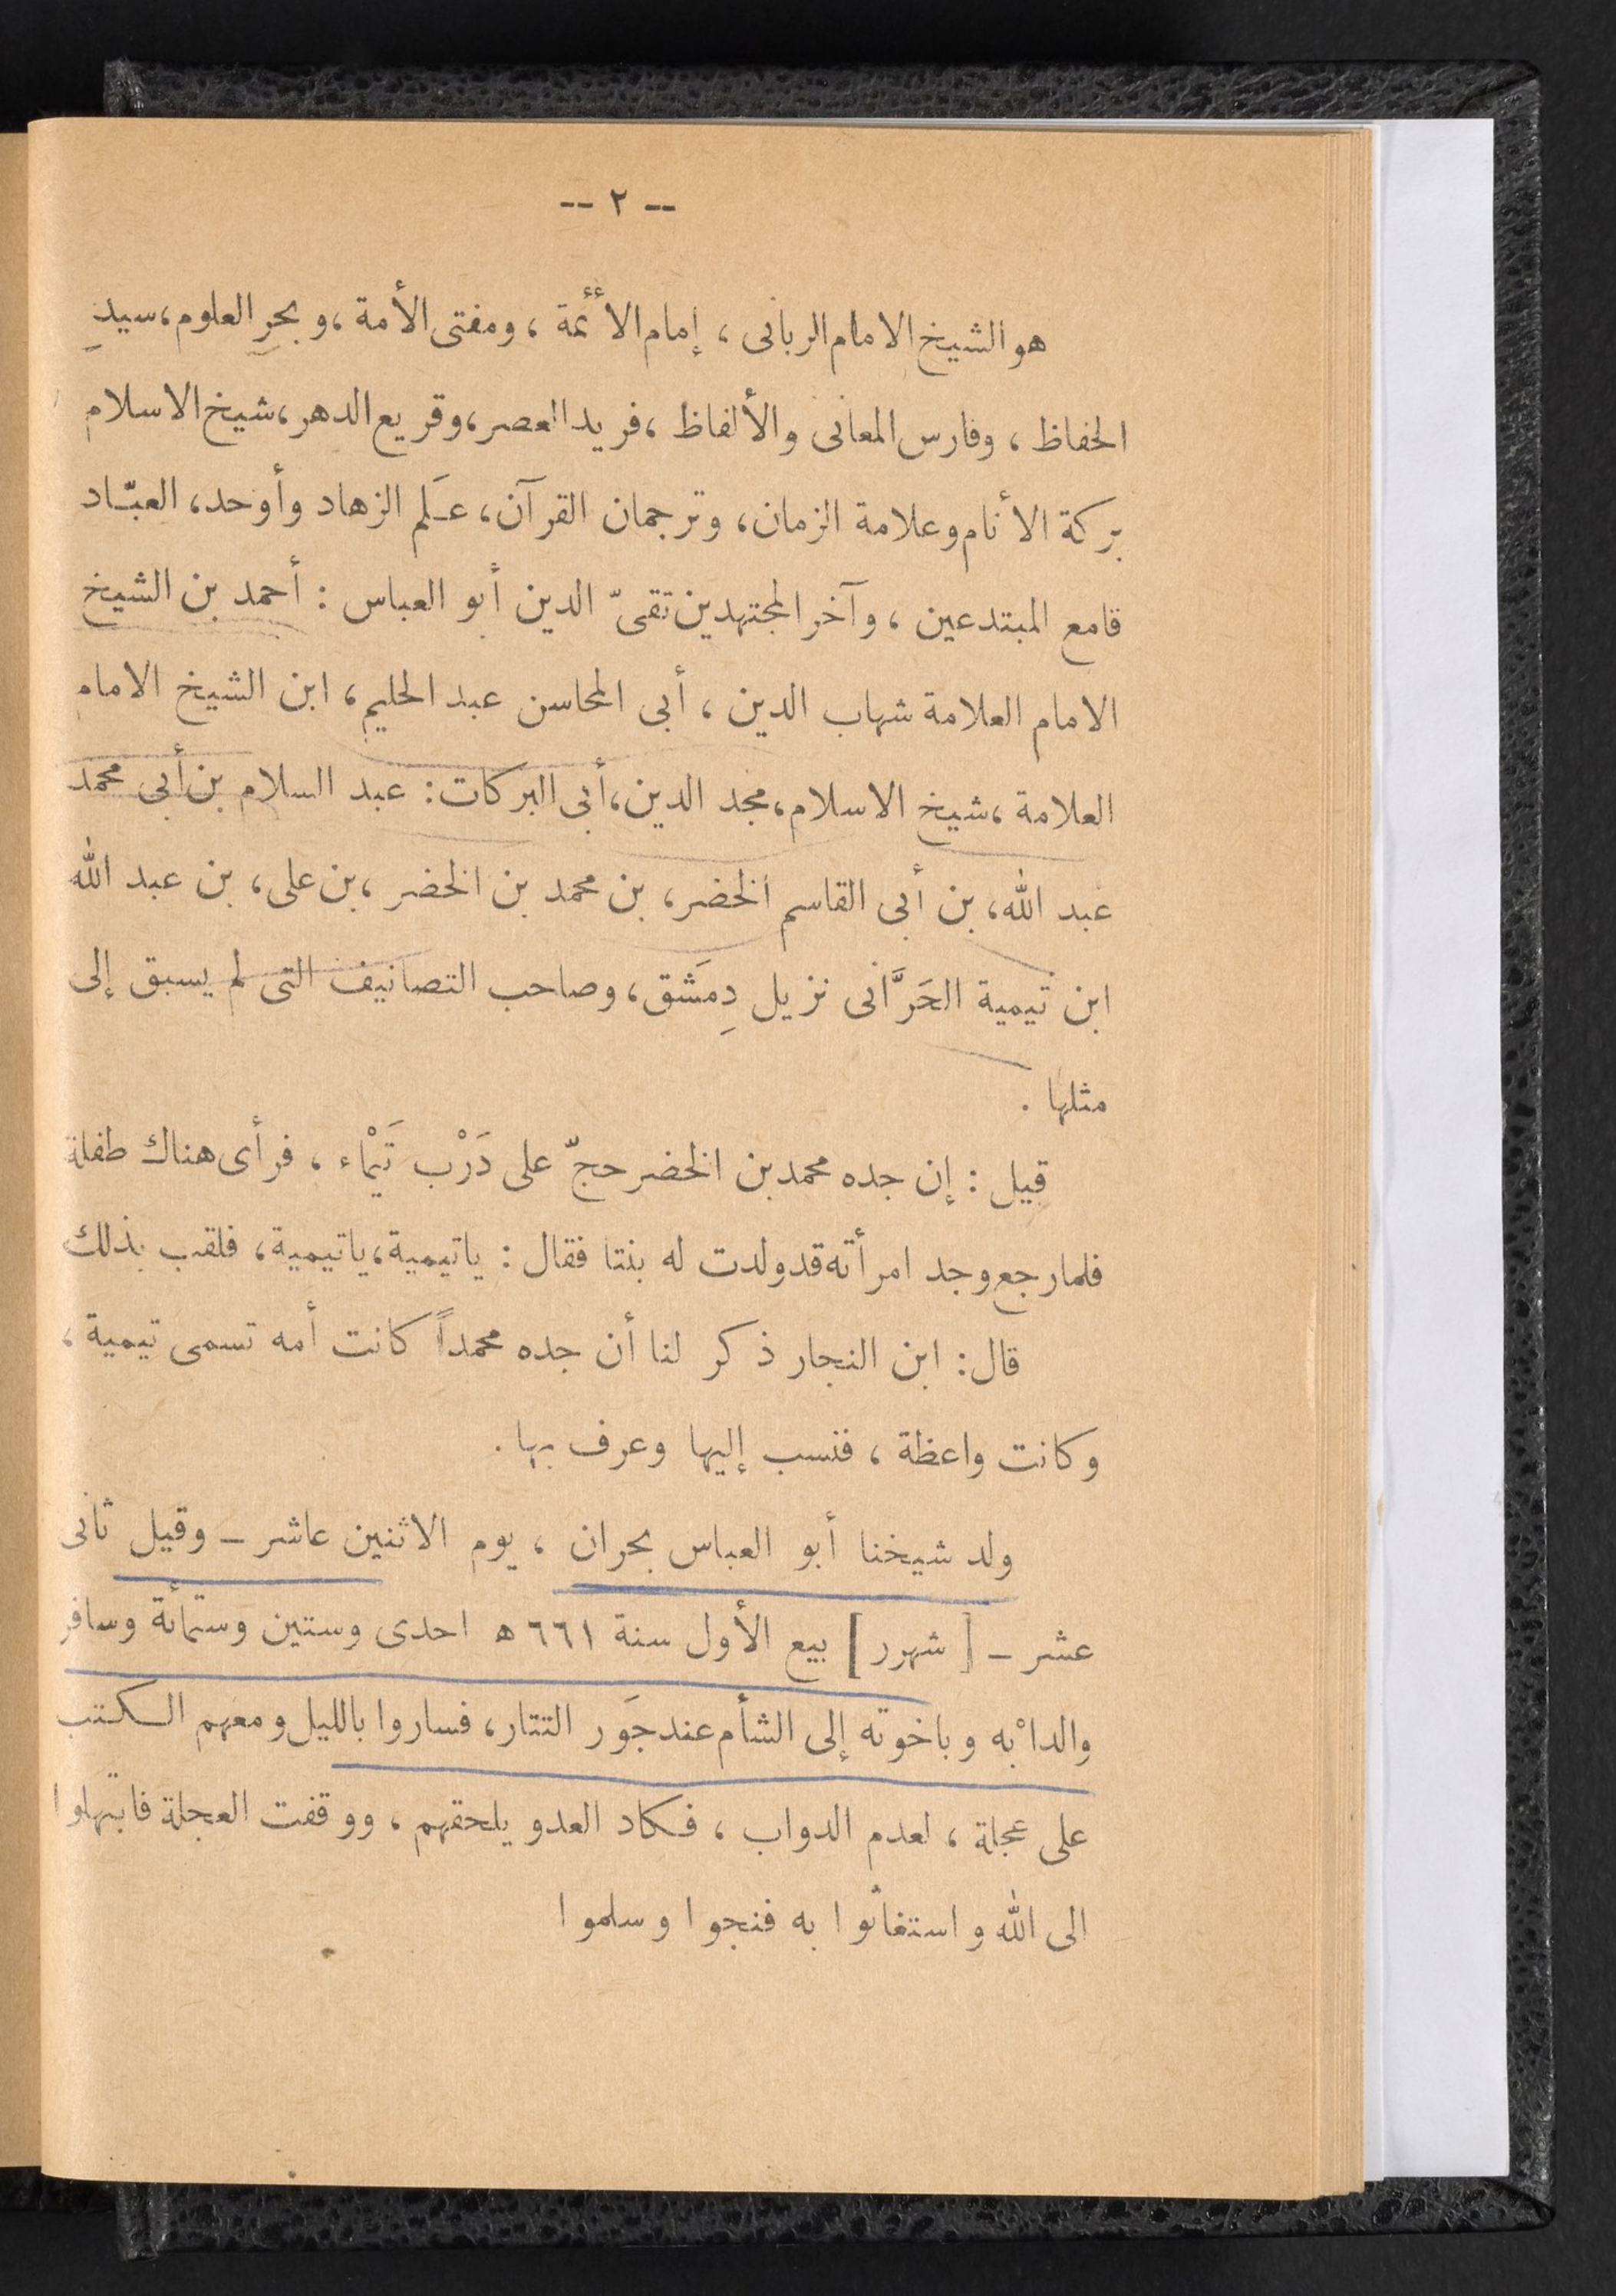 -- ٢ --
هو الشيخ الامام الربانى ، إمام الأئمة ، ومفتى الأمة ، وبحر العلوم ، سيدِ
الحفاظ ، وفارس المعانى والألفاظ ، فريد العصر ، وقريع الدهر ، شيخ الاسلام
بركة الأنام وعلامة الزمان ، وترجمان القرآن ، عَلم الزهاد وأوحد، العبّاد
قامع المبتدعين ، وآخر المجتهدين تقىّ الدين أبو العباس : أحمد بن الشيخ
الامام العلامة شهاب الدين ، أبى المحاسن عبد الحليم ، ابن الشيخ الامام
العلامة ، شيخ الاسلام ، مجد الدين ، أبى البركات : عبد السلام بن أبى محمد
عبد الله ، بن أبى القاسم الخضر ، بن محمد بن الخضر ، بن على ، بن عبد الله
ابن تيمية الحَرَّانى نزيل دِمَشق ، وصاحب التصانيف التى لم يسبق إلى
مثلها .
قيل : إن جده محمد بن الخضر حجّ على دَرْب تَيْماء ، فرأى هناك طفلة
فلما رجع وجد امرأته قد ولدت له بنتا فقال : ياتيمية ، ياتيمية ، فلقب بذلك
قال : ابن النجار ذكر لنا أن جده محمداً كانت أمه تسمى تيمية ،
وكانت واعظة ، فنسب إليها وعرف بها .
ولد شيخنا أبو العباس بحران ، يوم الاثنين عاشر – وقيل ثانى
عشر – [ شهرر ] بيع الأول سنة ٦٦١ ه احدى وستين وستمائة وسافر
والداْ به وباخوته إلى الشأم عند جَور التتار ، فساروا بالليل ومعهم الكتب
على عجلة ، لعدم الدواب ، فكاد العدو يلحقهم ، ووقفت العجلة فابتهلوا
الى الله واستغاثوا به فنجوا وسلموا